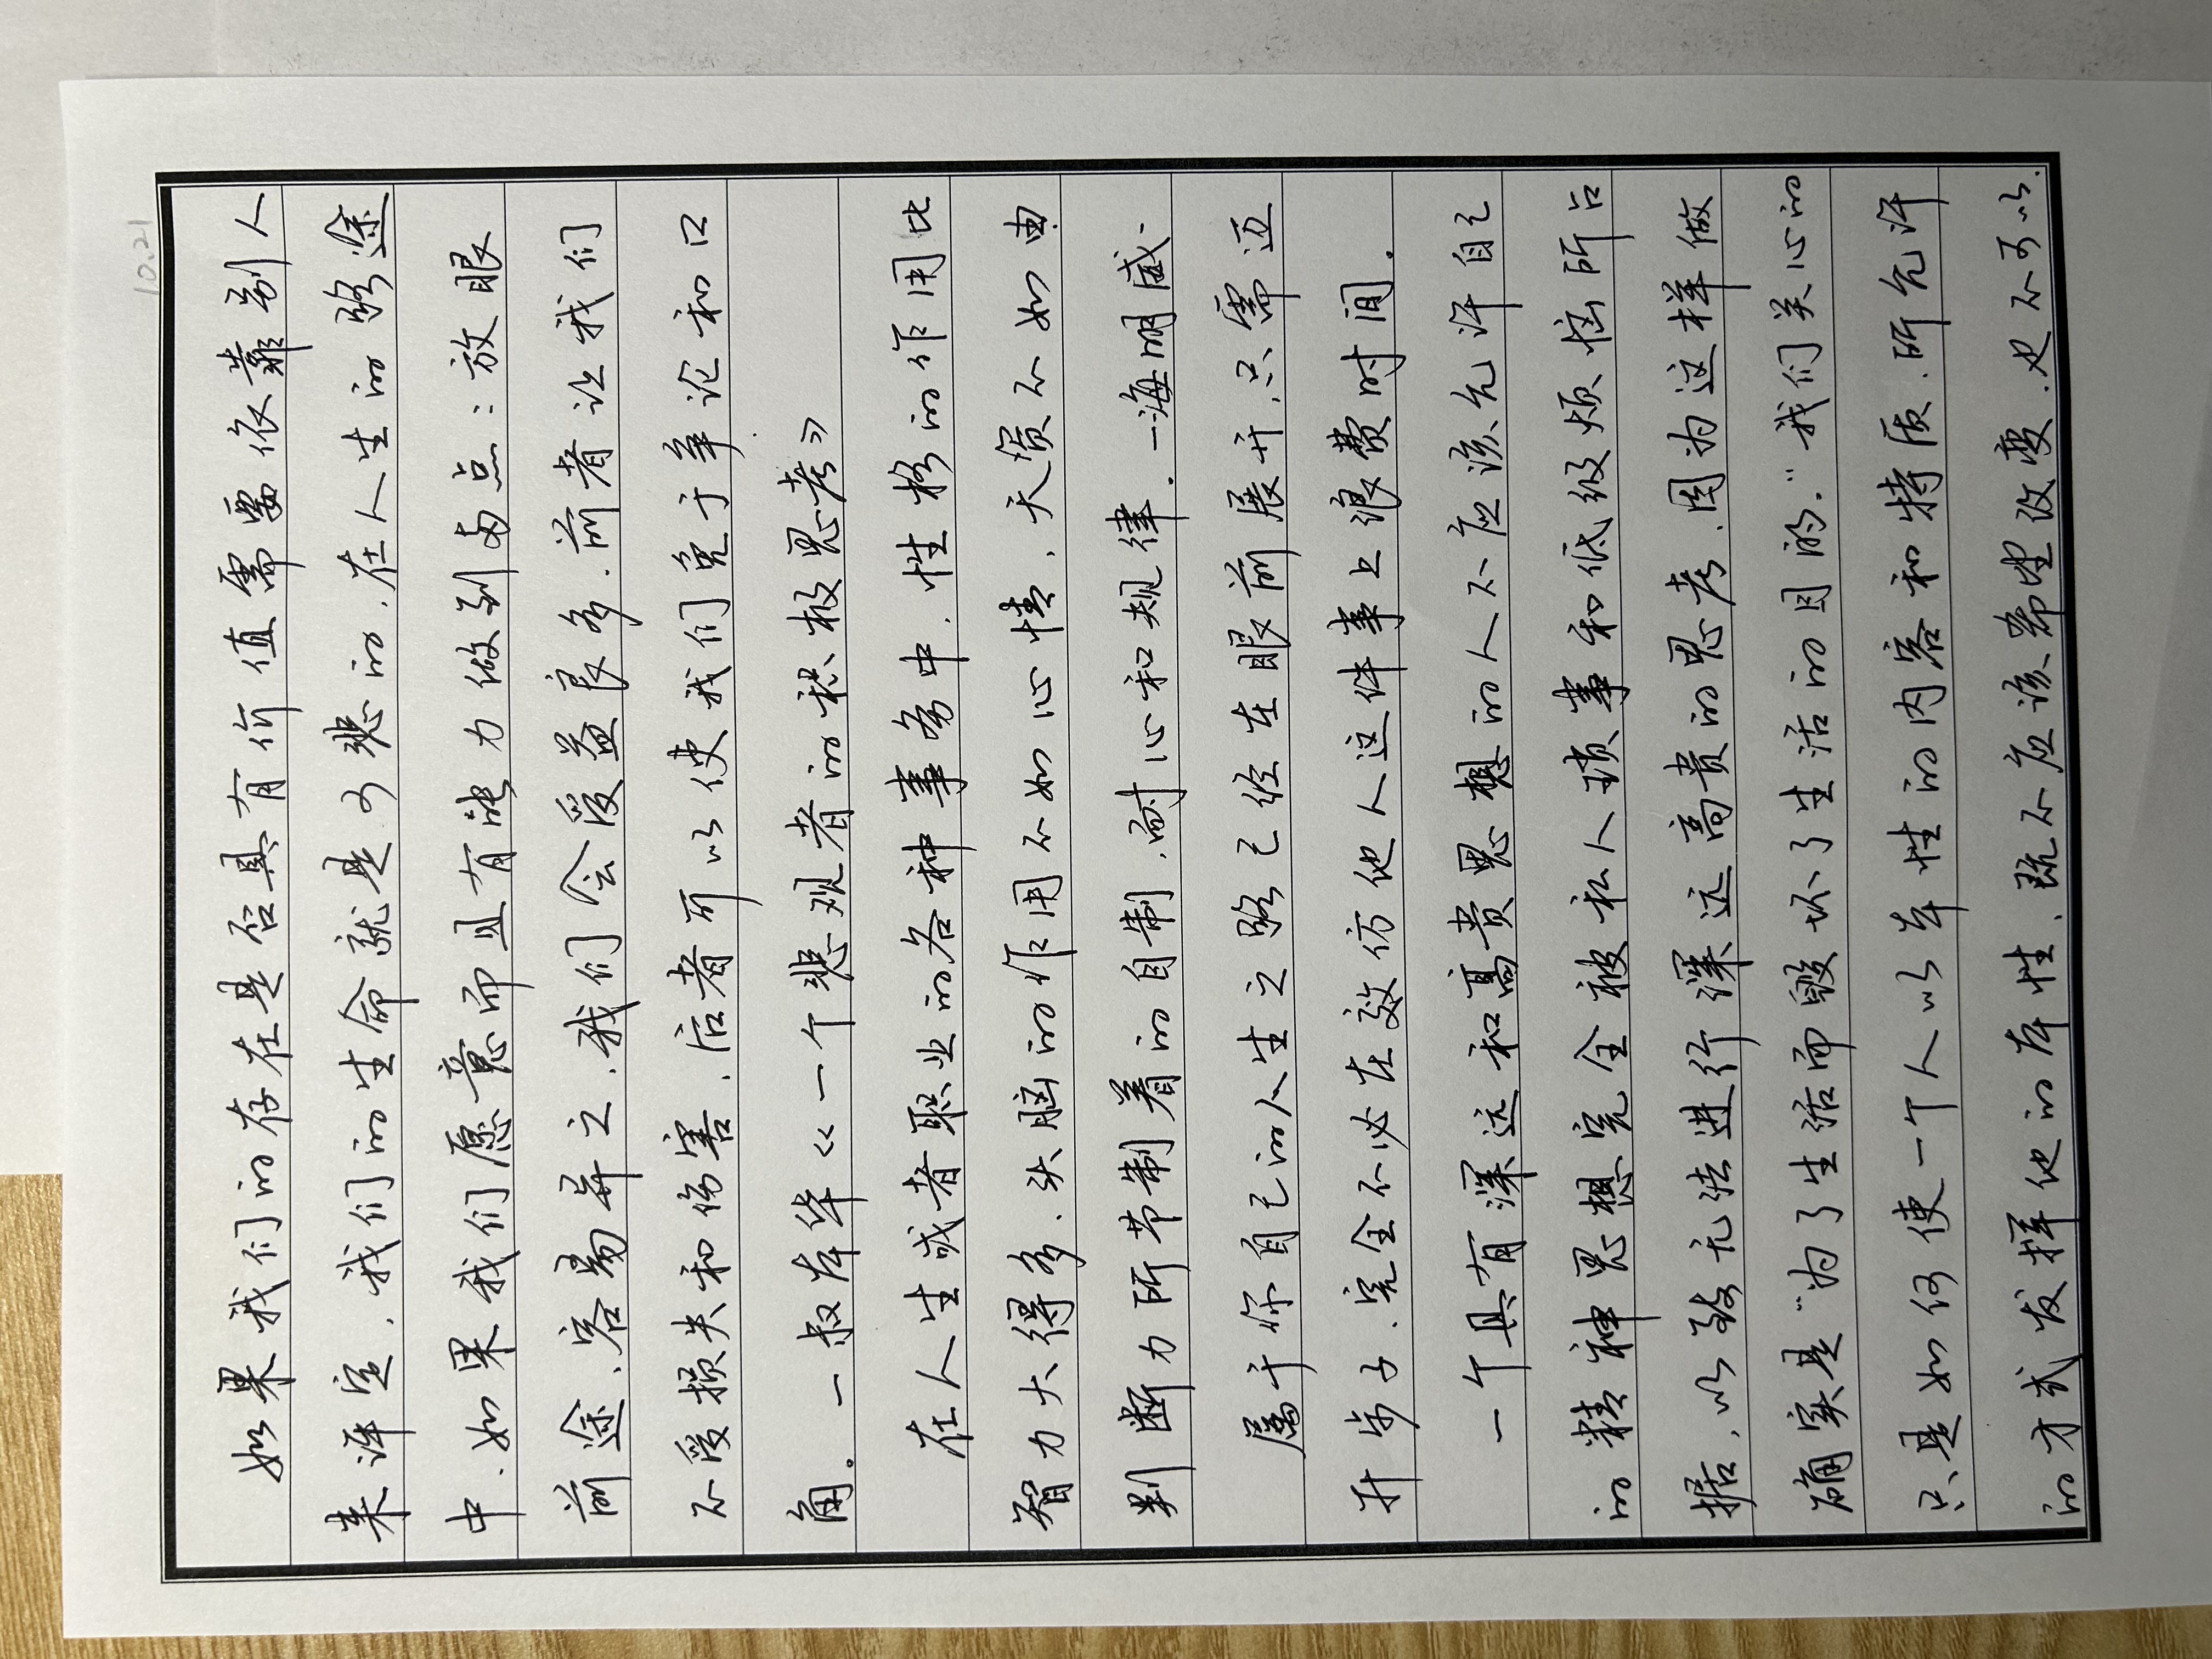 10.21
如果我们的存在是否具有价值需要依靠别人
来评定，我们的生命就是可悲的，在人生的路途
中，如果我们愿意而且有能力做到两点：放眼
前途、容易异之，我们会受益良多，前者让我们
不受损失和伤害，后者可以使我们免于争论和口
角。一叔本华《一个悲观者的积极思考》
在人生或者职业的各种事务中，性格的作用比
智力大得多，头脑的作用不如心情，天资不如由
判断力所节制着的自制，耐心和规律。一海明威
属于你自己的人生之路已经在眼前展开，只需迈
开步子，完全不必在效仿他人这件事上浪费时间。
一个具有深远和高贵思想的人不应该允许自己
的精神思想完全被私人琐事和低级烦恼所占
据，以致无法进行深远高贵的思考，因为这样做
确实是“为了生活而毁坏了生活的目的。”我们关心的
只是如何使一个人以本性的内容和特质，所允许
的方式发挥他的本性，既不应该希望改变，也不可以，